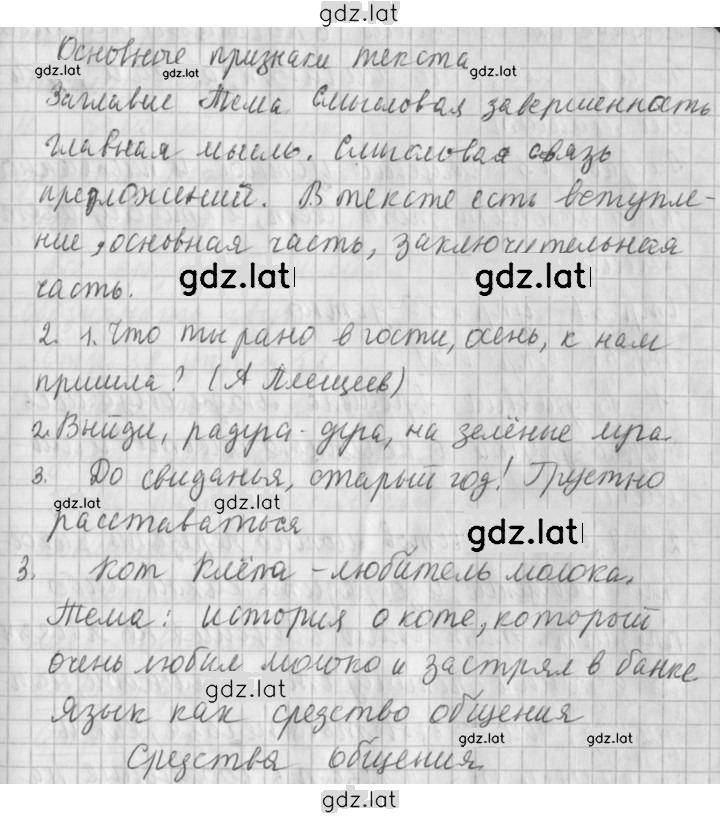 gdz.lat
Основные признаки текста
gdz.lat gdz.lat gdz.lat
Заглавие Тема Смысловая завершенность
главная мысль. Смысловая связь
предложений. В тексте есть вступле-
ние, основная часть, заключительная
gdz.lat gdz.lat
часть.
2. 1. Что ты рано в гости, осень, к нам
пришла? (А Плещеев)
2. Выйди, радуга-дуга, на зелёные луга
3. До свиданья, старый год! Грустно
gdz.lat gdz.lat
расставаться
gdz.lat
3. Кот Клёпа - любитель молока.
Тема: история о коте, который
очень любил молоко и застрял в банке
gdz.lat
Язык как средство общения
gdz.lat gdz.lat
Средства общения
gdz.lat